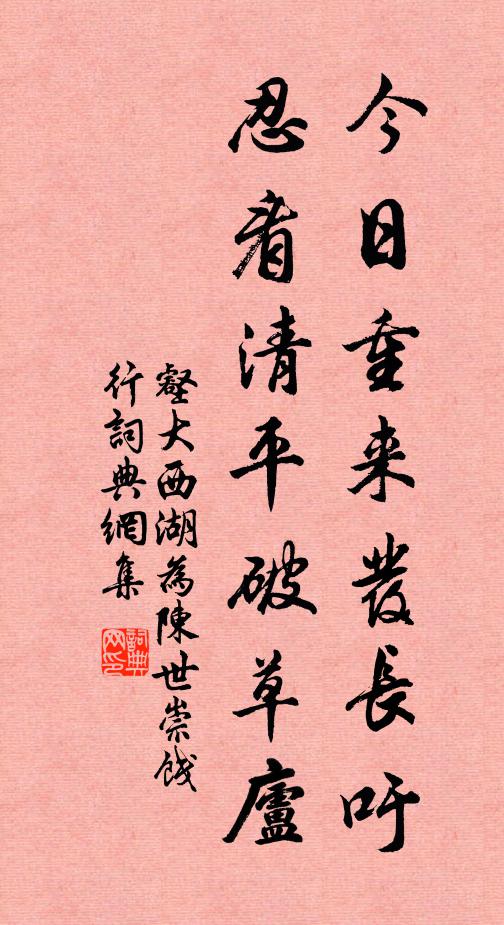 今日重来發長吁
忍看清平破草廬
壑大西湖為陳世崇餞
行詞典網集
詞典網印